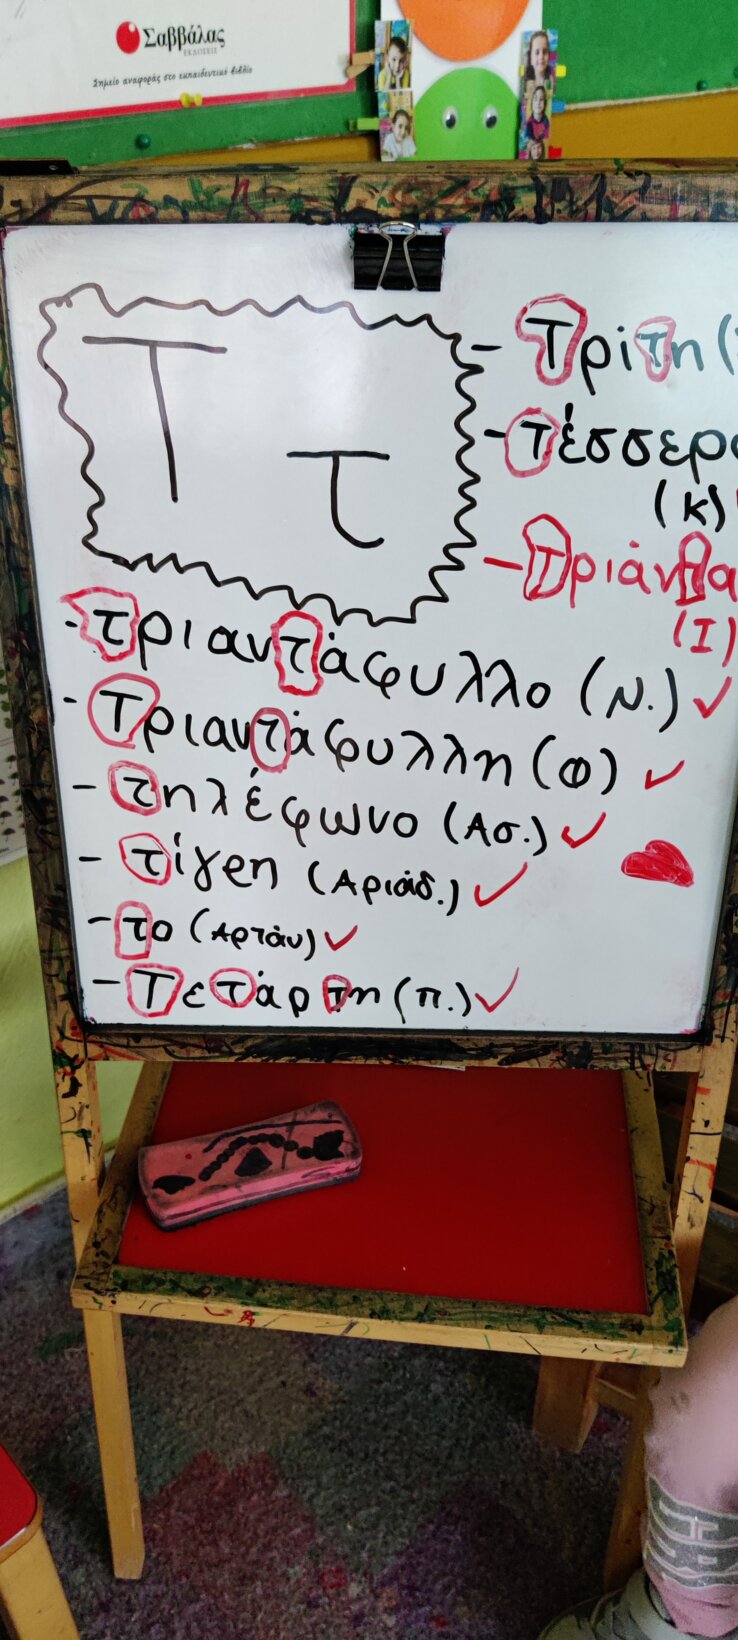 Σαββάλας
ΕΚΔΟΣΕΙΣ
Σημείο αναφοράς στο εκπαιδευτικό βιβλίο
Τ τ
- Τρίτη (
- τέσσερ
(κ)
- Τριάντα
(Ι)
- τριαντάφυλλο (Ν.) ✓
- Τριανταφυλλη (Φ) ✓
- τηλέφωνο (Ασ.) ✓
- τίγρη (Αριάδ.) ✓
- το (Αρτάν) ✓
- Τετάρτη (π.) ✓